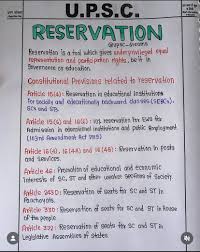 U.P.S.C.
RESERVATION
Reservation is a tool which gives underprivileged equal
representation and participation rights, be it in
Governance or education.
Constitutional Provisions related to reservation
Article 15(4): Reservation in educational institutions
for socially and educationally backward classes (SEBCs),
SCs and STs.
Article 15(6) and 16(6): 10% reservation for EWS for
Admission in educational institutions and public Employment
(103rd Amendment Act 2019)
Article 16(4), 16(4A) and 16(4B): Reservation in posts
and services.
Article 46: Promotion of educational and economic
Interests of SC, ST and other weaker sections of society
Article 243D: Reservation of seats for SC and ST in
Panchayats.
Article 330: Reservation of seats for SC and ST in House
of the people
Article 332: Reservation of seats for SC and ST in
Legislative Assemblies of states.